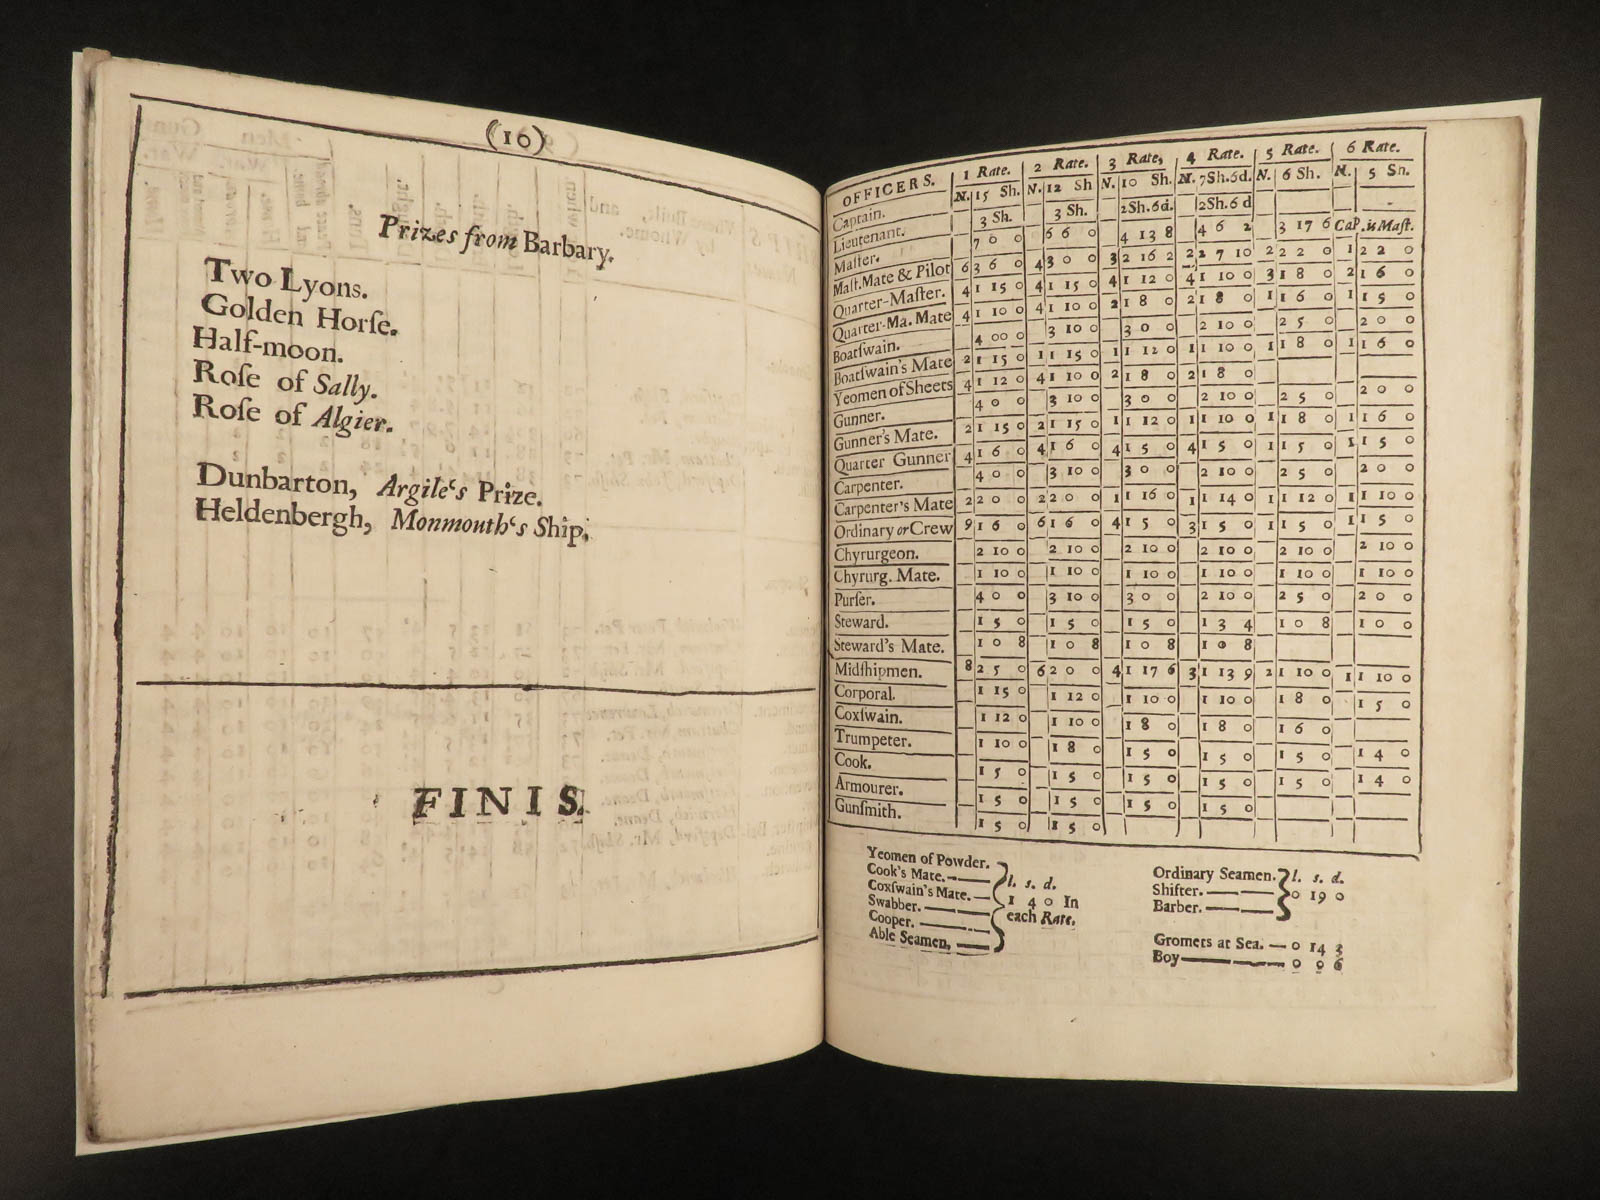 (10)
Prizes from Barbary.
Two Lyons.
Golden Horſe.
Half-moon.
Roſe of Sally.
Roſe of Algier.
Dunbarton, Argile‘s Prize.
Heldenbergh, Monmouth‘s Ship.
FINIS.
OFFICERS. 1 Rate. 2 Rate. 3 Rate, 4 Rate. 5 Rate. 6 Rate.
Captain. N. 15 Sh. N. 12 Sh N. 10 Sh. N. 7Sh.6d. N. 6 Sh. N. 5 Sh.
Lieutenant. 3 Sh. 3 Sh. 2Sh.6d. 2Sh.6d
Maſter. 7 0 0 6 6 0 4 13 8 4 6 2 3 17 6 Cap. is Maſt.
Maſt. Mate & Pilot 6 3 6 0 4 3 0 0 3 2 16 2 2 2 7 10 2 2 2 0 1 2 2 0
Quarter-Maſter. 4 1 15 0 4 1 15 0 4 1 12 0 4 1 10 0 3 1 8 0 2 1 6 0
Quarter-Ma. Mate 4 1 10 0 4 1 10 0 2 1 8 0 2 1 8 0 1 1 6 0 1 1 5 0
Boatſwain. 4 00 0 3 10 0 3 0 0 2 10 0 2 5 0 2 0 0
Boatſwain's Mate 2 1 15 0 1 1 15 0 1 1 12 0 1 1 10 0 1 1 8 0 1 1 6 0
Yeomen of Sheets 4 1 12 0 4 1 10 0 2 1 8 0 2 1 8 0
Gunner. 4 0 0 3 10 0 3 0 0 2 10 0 2 5 0 2 0 0
Gunner's Mate. 2 1 15 0 2 1 15 0 1 1 12 0 1 1 10 0 1 1 8 0 1 1 6 0
Quarter Gunner 4 1 6 0 4 1 6 0 4 1 5 0 4 1 5 0 1 1 5 0 1 1 5 0
Carpenter. 4 0 0 3 10 0 3 0 0 2 10 0 2 5 0 2 0 0
Carpenter's Mate 2 2 0 0 2 2 0 0 1 1 16 0 1 1 14 0 1 1 12 0 1 1 10 0
Ordinary or Crew 9 1 6 0 6 1 6 0 4 1 5 0 3 1 5 0 1 1 5 0 1 1 5 0
Chyrurgeon. 2 10 0 2 10 0 2 10 0 2 10 0 2 10 0 2 10 0
Chyrurg. Mate. 1 10 0 1 10 0 1 10 0 1 10 0 1 10 0 1 10 0
Purſer. 4 0 0 3 10 0 3 0 0 2 10 0 2 5 0 2 0 0
Steward. 1 5 0 1 5 0 1 5 0 1 3 4 1 0 8 1 0 0
Steward's Mate. 1 0 8 1 0 8 1 0 8 1 0 8
Midſhipmen. 8 2 5 0 6 2 0 0 4 1 17 6 3 1 13 9 2 1 10 0 1 1 10 0
Corporal. 1 15 0 1 12 0 1 10 0 1 10 0 1 8 0 1 5 0
Coxſwain. 1 12 0 1 10 0 1 8 0 1 8 0 1 6 0
Trumpeter. 1 10 0 1 8 0 1 5 0 1 5 0 1 5 0 1 4 0
Cook. 1 5 0 1 5 0 1 5 0 1 5 0 1 5 0 1 4 0
Armourer. 1 5 0 1 5 0 1 5 0 1 5 0
Gunſmith. 1 5 0 1 5 0
Yeomen of Powder.
Cook's Mate.
Coxſwain's Mate.
Swabber.
Cooper.
Able Seamen,
l. s. d.
1 4 0 In
each Rate.
Ordinary Seamen.
Shifter.
Barber.
l. s. d.
0 19 0
Gromets at Sea. — 0 14 3
Boy — 0 9 6